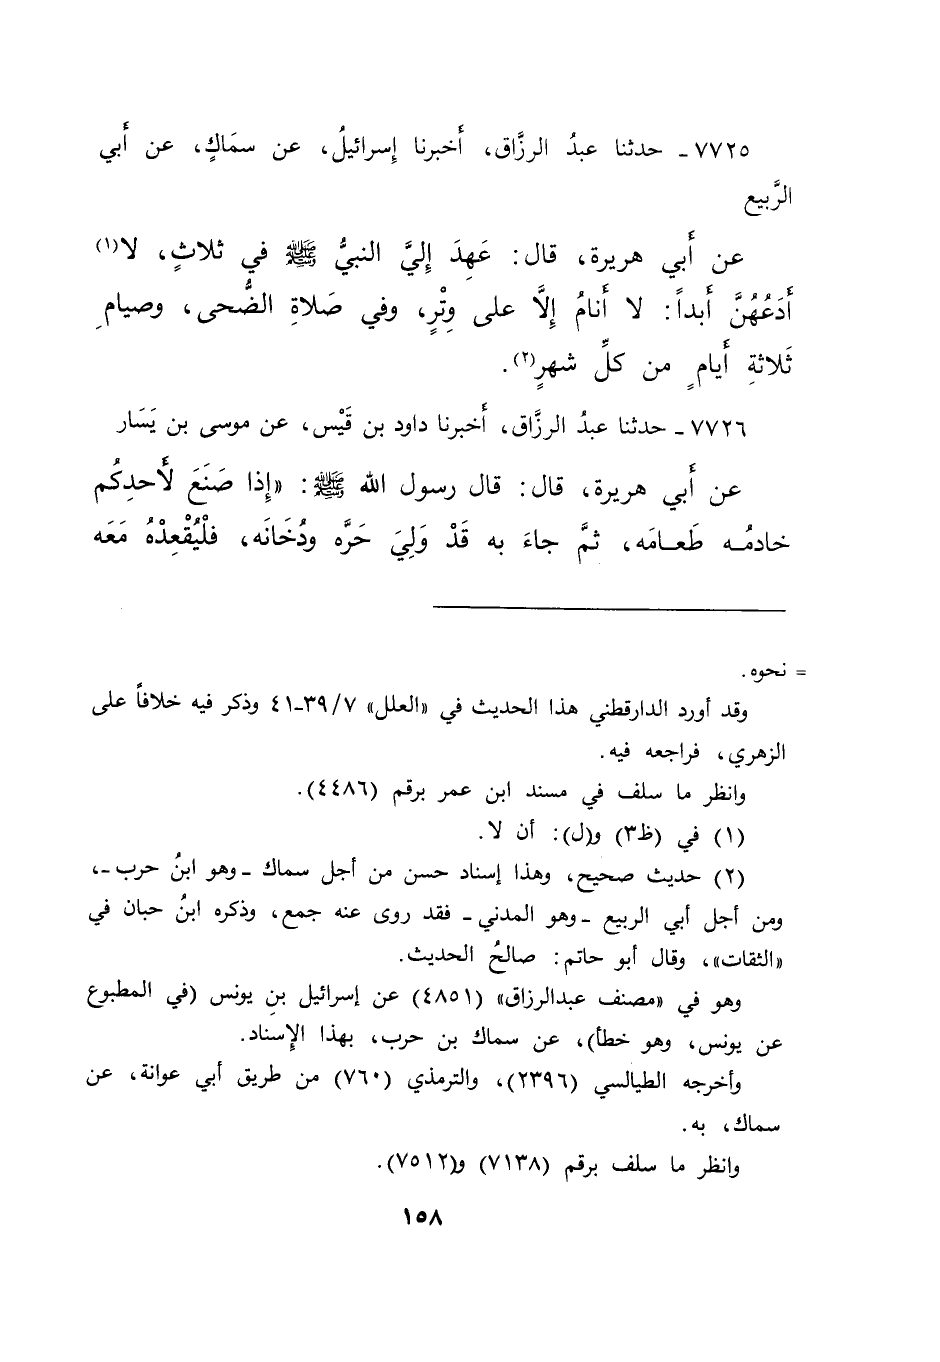 ٧٧٢٥ ـ حدثنا عبدُ الرزَّاق، أَخبرنا إِسرائيلُ، عن سمَاكٍ، عن أَبي
الرَّبيع
عن أَبي هريرة، قال: عَهِدَ إِليَّ النبيُّ ﷺ في ثلاثٍ، لا(١)
أَدَعُهُنَّ أَبداً: لا أَنامُ إِلَّا على وِتْرٍ، وفي صَلاةِ الضُّحى، وصيامِ
ثَلاثةِ أَيامٍ من كلِّ شهرٍ(٢).
٧٧٢٦ ـ حدثنا عبدُ الرزَّاق، أَخبرنا داود بن قَيْس، عن موسى بن يَسَار
عن أَبي هريرة، قال: قال رسول الله ﷺ: «إِذا صَنَعَ لأَحدِكُم
خادمُـه طَعـامَه، ثمَّ جاءَ به قَدْ وَلِيَ حَرَّه ودُخَانَه، فلْيُقْعِدْهُ مَعَه
= نحوه.
وقد أورد الدارقطني هذا الحديث في «العلل» ٣٩/٧ـ٤١ وذكر فيه خلافاً على
الزهري، فراجعه فيه.
وانظر ما سلف في مسند ابن عمر برقم (٤٤٨٦).
(١) في (ظ٣) و(ل): أن لا.
(٢) حديث صحيح، وهذا إسناد حسن من أجل سماك ـ وهو ابنُ حرب ـ،
ومن أجل أبي الربيع ـ وهو المدني ـ فقد روى عنه جمع، وذكره ابنُ حبان في
«الثقات»، وقال أبو حاتم: صالحُ الحديث.
وهو في «مصنف عبدالرزاق» (٤٨٥١) عن إسرائيل بنِ يونس (في المطبوع
عن يونس، وهو خطأ)، عن سماك بن حرب، بهذا الإِسناد.
وأخرجه الطيالسي (٢٣٩٦)، والترمذي (٧٦٠) من طريق أبي عوانة، عن
سماك، به.
وانظر ما سلف برقم (٧١٣٨) و(٧٥١٢).
١٥٨